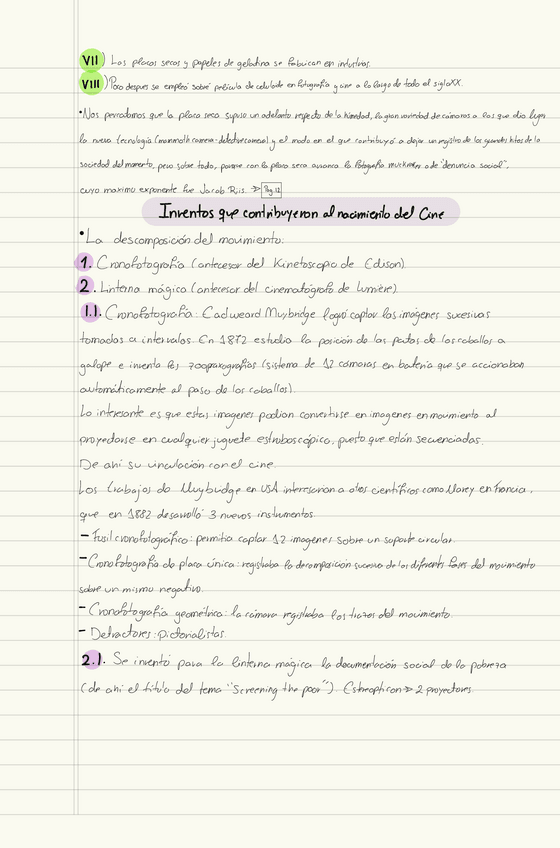 VII) Las placas secas y papeles de gelatina se fabrican en industrias.
VIII) Poco despues se empleó sobre película de celuloide en fotografía y cine a lo largo de todo el siglo XX.
•Nos percatamos que la placa seca supuso un adelanto respecto de la humedad, la gran variedad de cámaras a las que dio lugar
la nueva tecnología (mammoth camera - detective camera) y el modo en el que contribuyó a dejar un registro de los grandes hitos de la
sociedad del momento, pero sobre todo, porque con la placa seca avanza la fotografía muckraker o de "denuncia social",
cuyo maximo exponente fue Jacob Riis. → Pag.12
Inventos que contribuyeron al nacimiento del Cine
•La descomposición del movimiento:
1. Cronofotografía (antecesor del Kinetoscopio de Edison)
2. Linterna mágica (antecesor del cinematógrafo de Lumière)
1.1. Cronofotografía: Eadweard Muybridge logró captar las imágenes sucesivas
tomadas a intervalos. En 1872 estudia la posición de las patas de los caballos a
galope e inventa los zoopraxografías (sistema de 12 cámaras en batería que se accionaban
automáticamente al paso de los caballos).
Lo interesante es que estas imagenes podían convertirse en imagenes en movimiento al
proyectarse en cualquier juguete estroboscópico, puesto que están secuenciadas.
De ahi su vinculación con el cine.
Los trabajos de Muybridge en USA interesarian a otros científicos como Marey en Francia,
que en 1882 desarrolló 3 nuevos instrumentos.
- Fusil cronofotográfico: permitía captar 12 imagenes sobre un soporte circular.
- Cronofotografía de placa única: registraba la descomposición sucesiva de las diferentes fases del movimiento
sobre un mismo negativo.
- Cronofotografía geométrica: la cámara registraba los trazos del movimiento.
- Detractores: pictorialistas
2.1. Se inventó para la linterna mágica la documentación social de la pobreza
(de ahi el título del tema "Screening the poor"). Estreopticon → 2 proyectores.